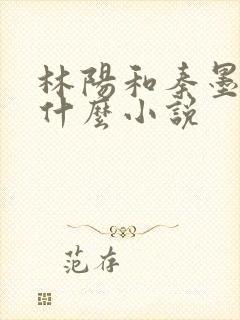 林陽和秦墨
什麼小說
范存